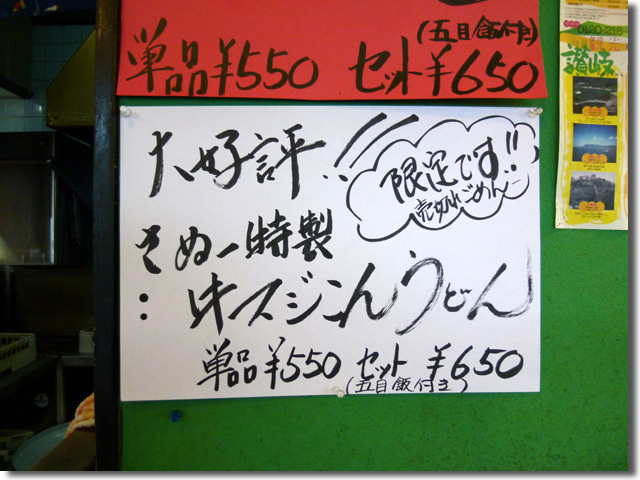 (五目飯付き)
単品¥550 セット¥650
0120-218
讃岐
大好評!!!
限定です!!
売切れごめん
さぬー特製
牛スジこんうどん
単品¥550 セット¥650
(五目飯付き)